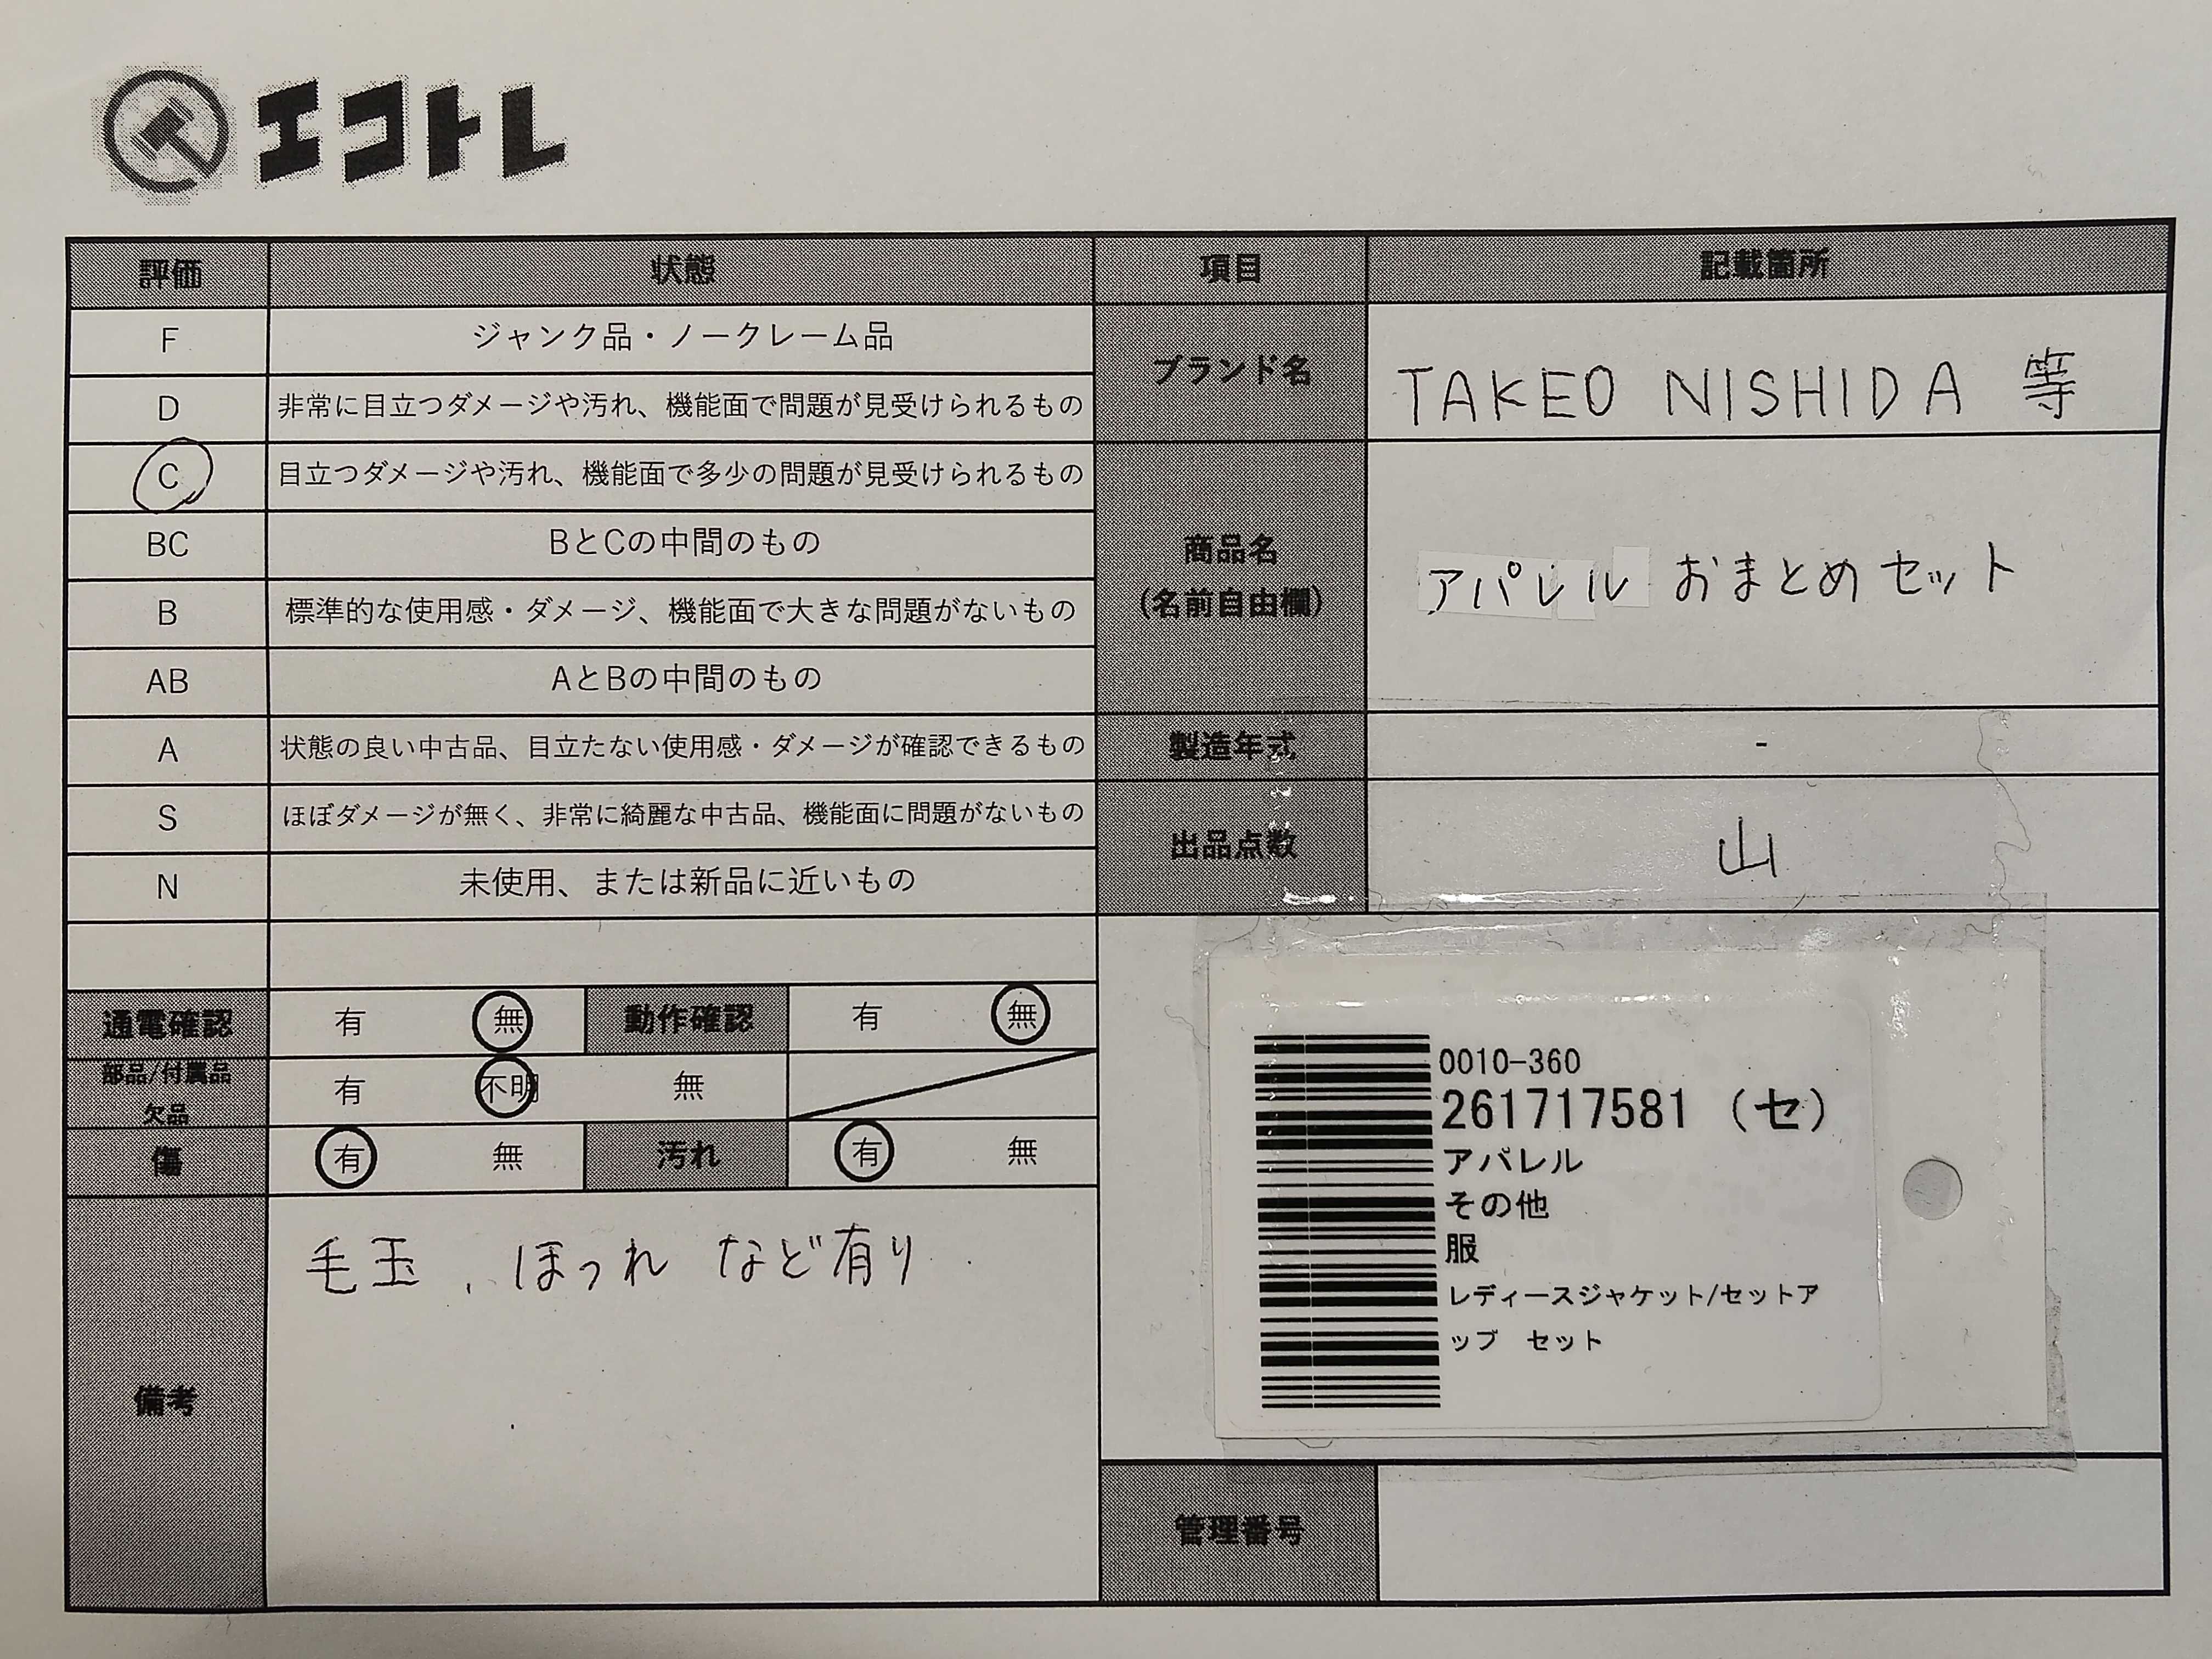 エコトレ
評価 状態 項目 記載箇所
F ジャンク品・ノークレーム品
D 非常に目立つダメージや汚れ、機能面で問題が見受けられるもの
ブランド名 TAKEO NISHIDA 等
C 目立つダメージや汚れ、機能面で多少の問題が見受けられるもの
BC BとCの中間のもの
B 標準的な使用感・ダメージ、機能面で大きな問題がないもの
商品名
(名前自由欄)
アパレル おまとめセット
AB AとBの中間のもの
A 状態の良い中古品、目立たない使用感・ダメージが確認できるもの
製造年式 -
S ほぼダメージが無く、非常に綺麗な中古品、機能面に問題がないもの
出品点数 山
N 未使用、または新品に近いもの
通電確認 有 無 動作確認 有 無
部品/付属品
欠品
有 不明 無
傷 有 無 汚れ 有 無
備考
毛玉、ほつれ など有り
0010-360
261717581 (セ)
アパレル
その他
服
レディースジャケット/セットア
ップ セット
管理番号